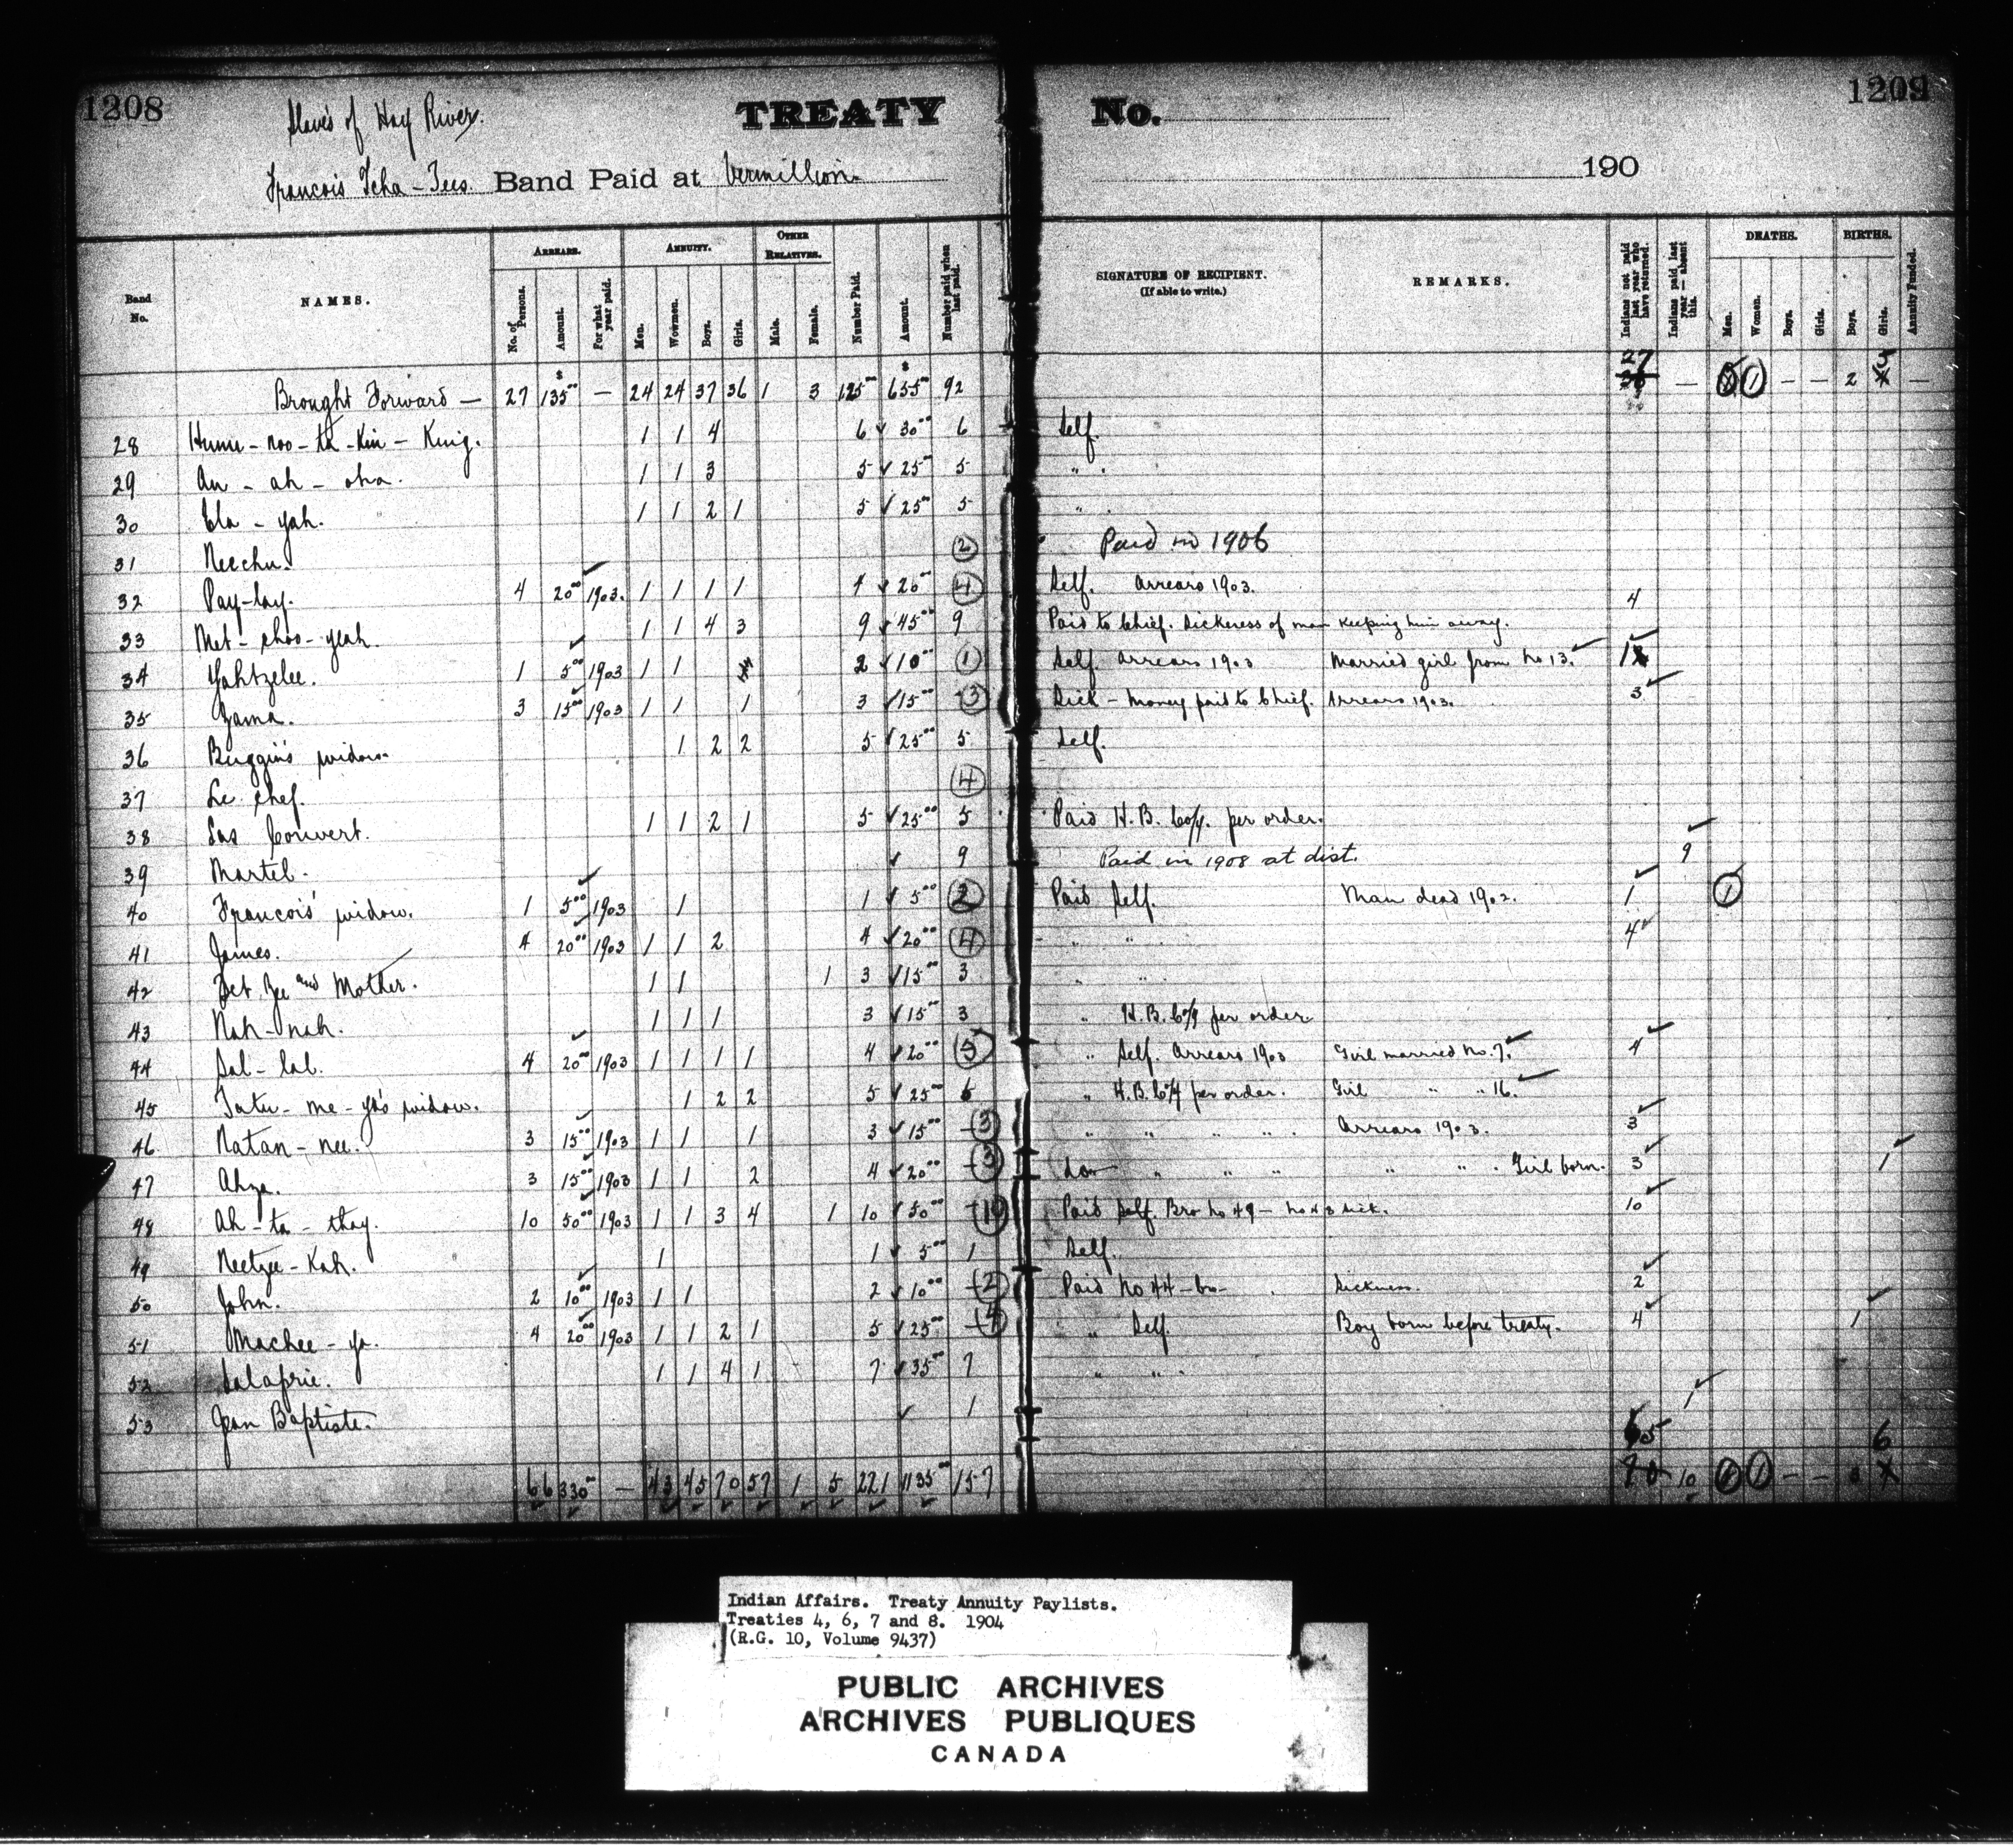 1208
Slaves of Hay River.
TREATY No. 1209
Francois Tcha-Tees. Band Paid at Vermillion. 190
Band No. NAMES. ARREARS. No. of Persons. Amount. For what year paid. ANNUITY. Men. Women. Boys. Girls. OTHER RELATIVES. Male. Female. Number Paid. Amount. Number paid when last paid. SIGNATURE OF RECIPIENT. (If able to write.) REMARKS. Indians not paid last year who have returned. Indians paid last year — absent this. DEATHS. Men. Women. Boys. Girls. BIRTHS. Boys. Girls. Annuity Funded.
Brought Forward — 27 $135 00 — 24 24 37 36 1 3 125 $655 00 92 27 — 1 — — 2 —
28 Hume-noo-ta-Kin-King. 1 1 4 6 30 00 6 Self.
29 An-ah-aha. 1 1 3 5 25 5 "
30 Ela-yah. 1 1 2 1 5 25 00 5 "
31 Neechu. 2 Paid in 1906
32 Pay-lay. 4 20 00 1903. 1 1 1 1 4 20 00 4 Self. Arrears 1903. 4
33 Met-choo-yeah. 1 1 4 3 9 45 00 9 Paid to Chief. Sickness of man keeping him away.
34 Yahtzelee. 1 5 00 1903 1 1 2 10 00 1 Self. Arrears 1903 Married girl from No 13. 1
35 Zama. 3 15 00 1903 1 1 1 3 15 00 3 Sick - Money paid to Chief. Arrears 1903. 3
36 Buggin's widow. 1 2 2 5 25 00 5 Self.
37 Le chef. 4
38 Sas Couvert. 1 1 2 1 5 25 00 5 Paid H. B. Co'y. per order.
39 Martel. 9 Paid in 1908 at dist. 9
40 Francois' widow. 1 5 00 1903 1 1 5 00 2 Paid Self. Man dead 1902. 1 1
41 James. 4 20 00 1903 1 1 2 4 20 00 4 " " 4
42 Zet Zee and Mother. 1 1 1 3 15 00 3 " "
43 Nah-nah. 1 1 1 3 15 00 3 " H.B. Co'y per order
44 Sal-lal. 4 20 00 1903 1 1 1 1 4 20 00 5 " Self. Arrears 1903 Girl married No. 7. 4
45 Tatu-me-ya's widow. 1 2 2 5 25 00 6 " H.B. Co'y per order. Girl " " 16.
46 Natan-nee. 3 15 00 1903 1 1 1 3 15 00 3 " " " " Arrears 1903. 3
47 Ahza. 3 15 00 1903 1 1 2 4 20 00 3 " " " " " Girl born. 3 1
48 Ah-ta-thay. 10 50 00 1903 1 1 3 4 1 10 50 00 10 Paid Self. Bro No 49 — No 43 Sick. 10
49 Neetzee-Kah. 1 1 5 00 1 Self.
50 John. 2 10 00 1903 1 1 2 10 00 2 Paid No 44 - Sickness. 2
51 Machee-ya. 4 20 00 1903 1 1 2 1 5 25 00 4 " Self. Boy born before treaty. 4 1
52 Salaprie. 1 1 4 1 7 35 00 7 " "
53 Jean Baptiste. 1 1
65 6
66 330 00 — 43 45 70 57 1 5 221 1135 00 157 10 1 — —
Indian Affairs. Treaty Annuity Paylists.
Treaties 4, 6, 7 and 8. 1904
(R.G. 10, Volume 9437)
PUBLIC ARCHIVES
ARCHIVES PUBLIQUES
CANADA